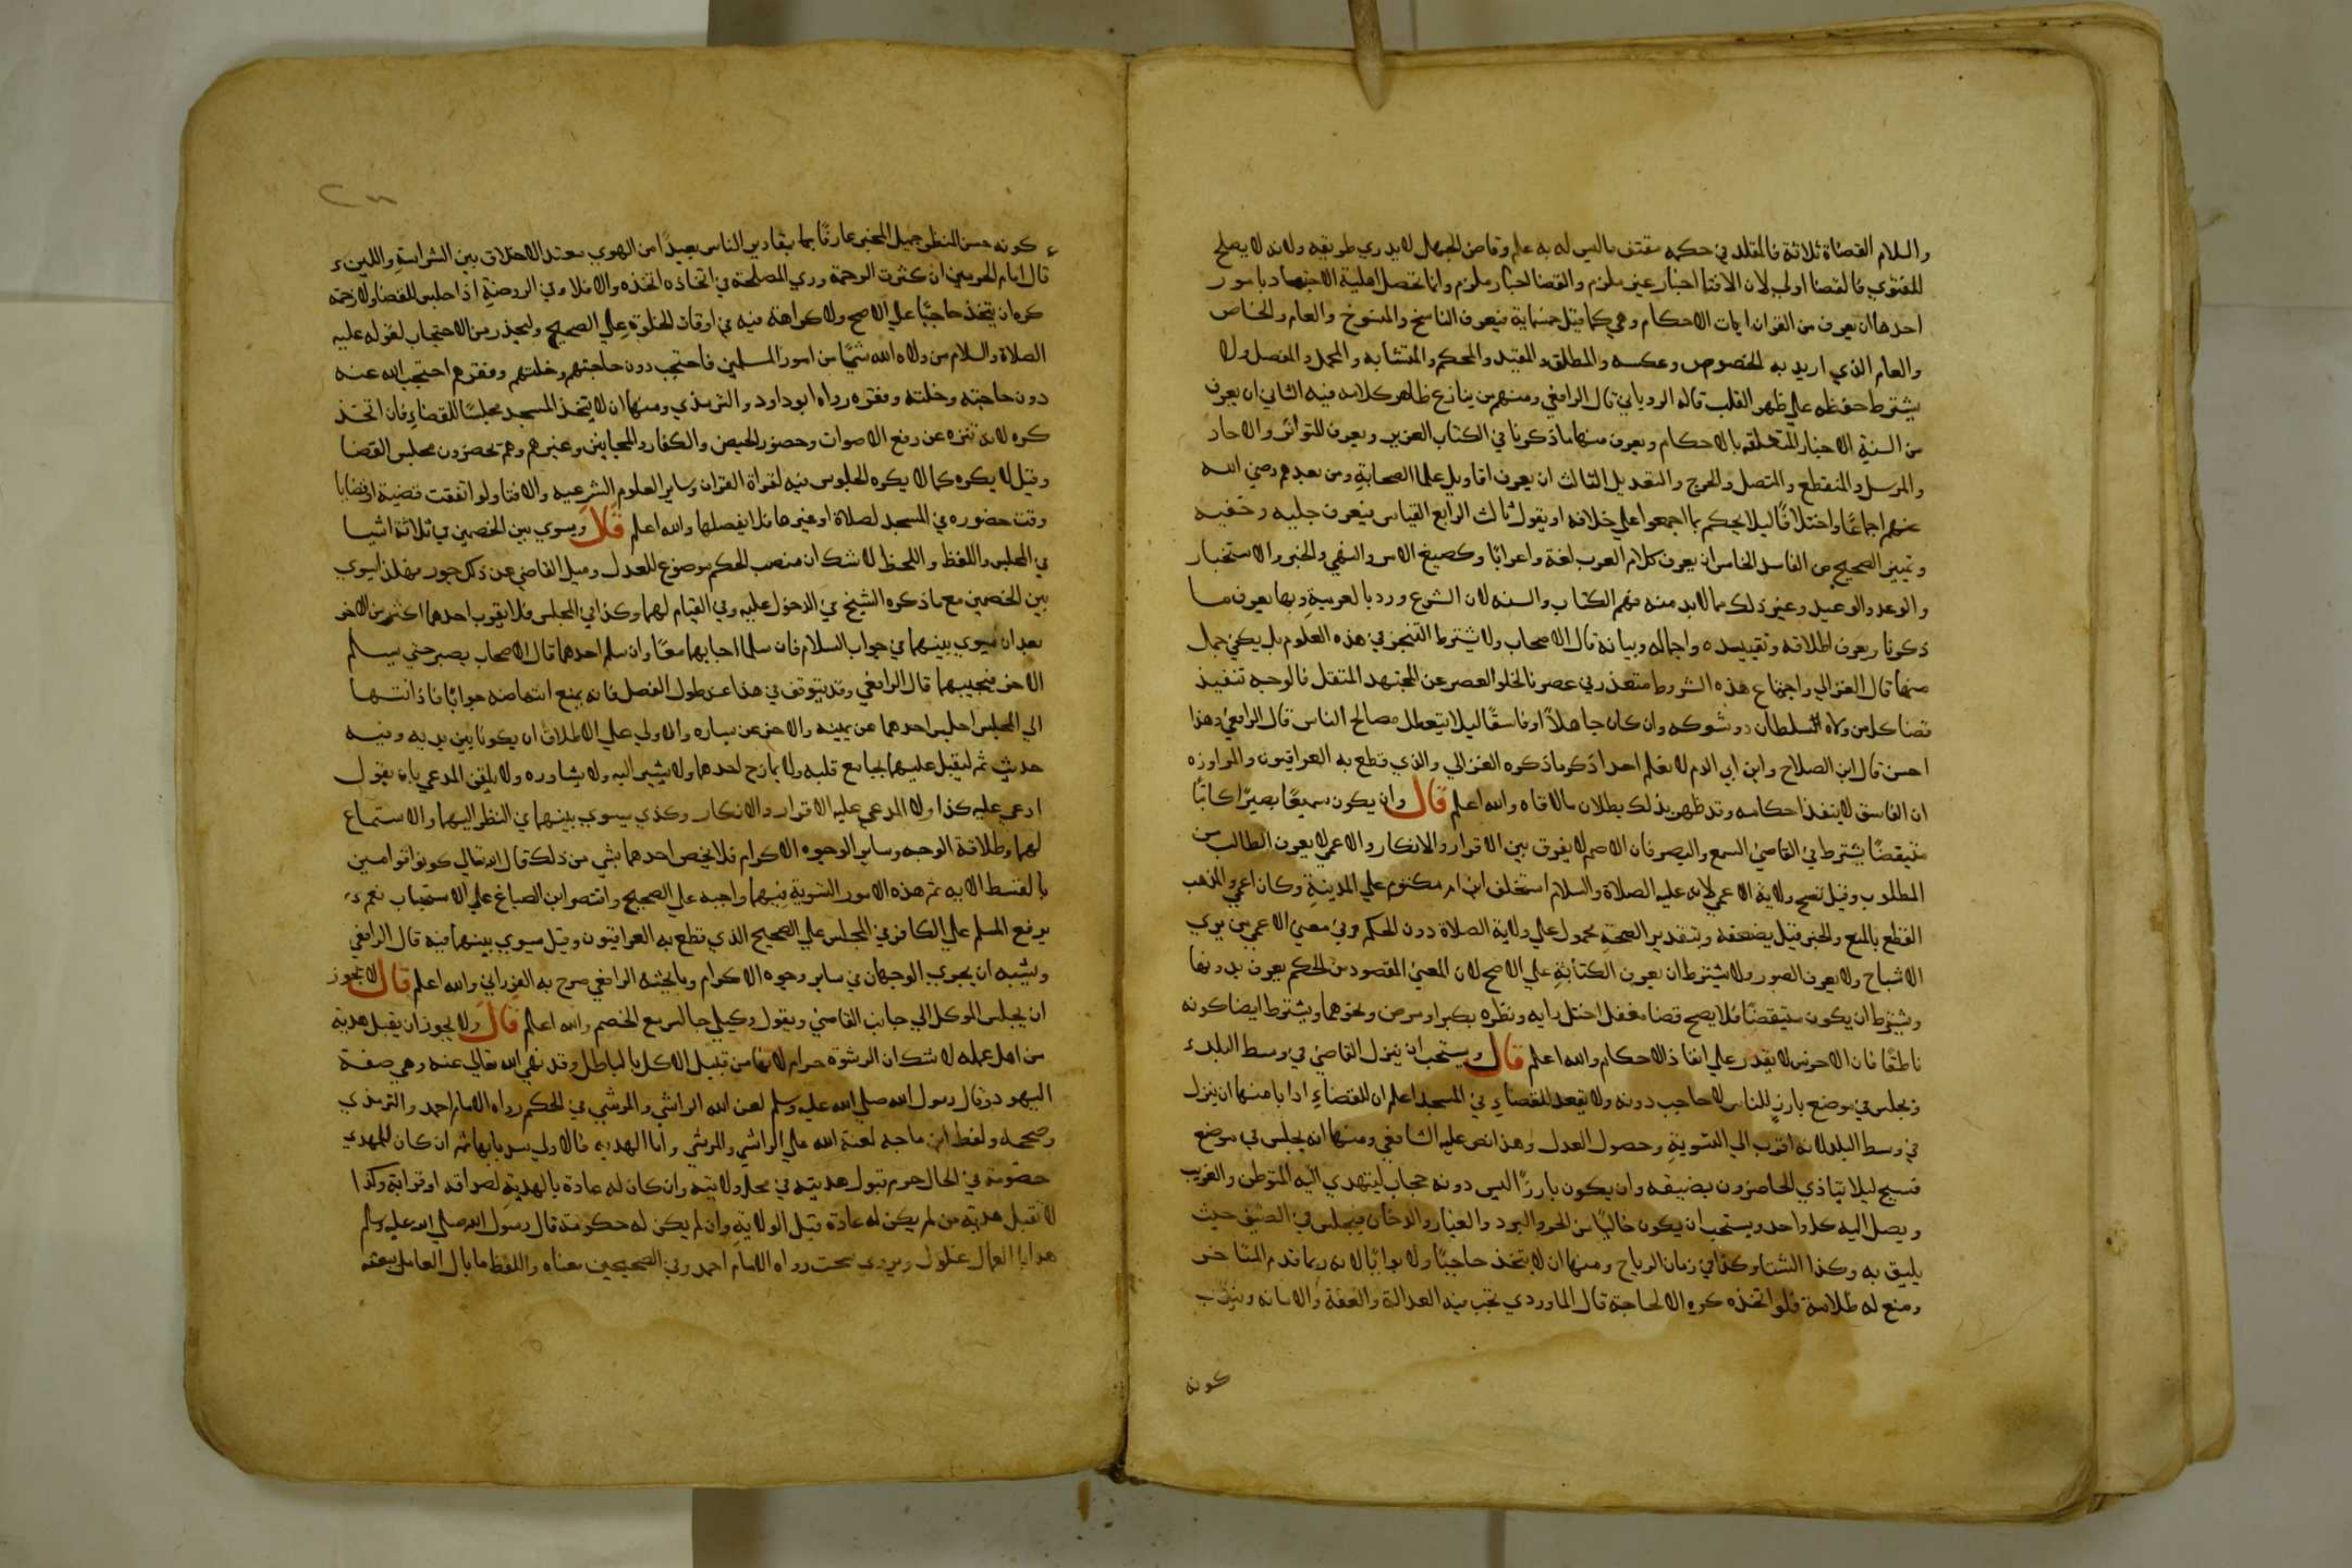 والسلام القضاة ثلاثة فالمقلد في حكمه مقتف ماليس له به علم وقاض الجهل لا يدري طريقه ولانه لا يصلح
للفتوي فالقضا اولي لان الافتا اخبار غير ملزم والقضا اخبار ملزم وانما تحصل اهلية الاجتهاد بامور
احدها ان يعرف من القران ايات الاحكام وهي كما قيل خمسماية فيعرف الناسخ والمنسوخ والعام والخاص
والعام الذي اريد به الخصوص وعكسه والمطلق والمقيد والمحكم والمتشابه والمجمل والمفصل ولا
يشترط حفظه علي ظهر القلب قاله الروياني قال الرافعي ومنهم من ينازع ظاهر كلامه فيه الثاني ان يعرف
من السنة الاخبار المتعلقة بالاحكام ويعرف منها ماذكرنا في الكتاب العزيز ويعرف المتواتر والاحاد
والمرسل والمنقطع والمتصل والجرح والتعديل الثالث ان يعرف اقاويل علما الصحابة ومن بعدهم رضي الله
عنهم اجماعا واختلافا ليلا يحكم بما اجمعوا علي خلافه او يقول ثالث الرابع القياس فيعرف جليه وخفيه
وتمييز الصحيح من الفاسد الخامس ان يعرف كلام العرب لغة واعرابا وكصيغ الامر والنهي والخبر والاستخبار
والوعد والوعيد وغير ذلك مما لابد منه فهم الكتاب والسنه لان الشرع ورد بالعربية وبها يعرف ما
ذكرنا ويعرف اطلاقه وتقييده واجماله وبيانه قال الاصحاب ولا يشترط التبحر في هذه العلوم بل يكفي جمل
منها قال الغزالي واجتماع هذه الشروط متعذر في عصرنا لخلو العصر عن المجتهد المستقل فالوجه تنفيذ
قضا كل من ولاه السلطان ذو شوكه وان كان جاهلا او فاسقا ليلا يتعطل مصالح الناس قال الرافعي وهذا
احسن قال ابن الصلاح وابن ابي الدم لا نعلم احدا ذكر ماذكره الغزالي والذي قطع به العراقيون والمراوزه
ان الفاسق لا ينفذ احكامه وقد ظهر بذلك بطلان مالاقاه والله اعلم قال وان يكون سميعا بصيرا كاتبا
متيقضا يشترط في القاضي السمع والبصر فان الاصم لا يفرق بين الاقرار والانكار والاعمي لا يعرف الطالب من
المطلوب وقيل تصح ولاية الاعمي لانه عليه الصلاة والسلام استخلف ابن ام مكتوم علي المدينة وكان اعمي والمذهب
القطع بالمنع والخبر قيل يضعفه وبتقدير الصحة محمول علي ولاية الصلاة دون الحكم وفي معني الاعمي من يري
الاشباح ولا يعرف الصور ولا يشترط ان يعرف الكتابة علي الاصح لان المعني المقصود من الحكم يعرف بدونها
ويشترط ان يكون متيقضا فلا يصح قضا مغفل اختل رايه ونظره بكبر او مرض ونحوهما ويشترط ايضا كونه
ناطقا فان الاخرس لا يقدر علي انفاذ الاحكام والله اعلم قال ويستحب ان ينزل القاضي في وسط البلد
ويجلس في موضع بارز للناس لا حاجب دونه ولا يقعد للقضاء في المسجد اعلم ان للقضاء ادابا منها ان ينزل
في وسط البلد لانه اقرب الي التسوية وحصول العدل وهذا نص عليه الشافعي ومنها انه يجلس في موضع
فسيح ليلا يتاذي الحاضرون بضيقه وان يكون بارزا ليس دونه حجاب ليتهدي اليه المتوطن والغريب
ويصل اليه كل واحد ويستحب ان يكون خاليا من الحر والبرد والغبار والدخان فيجلس في الصيف حيث
يليق به وكذا الشتا وكذا في زمان الرياح ومنها ان لا يتخذ حاجبا ولا بوابا لانه ربما قدم المتاخر
ومنع له ظلامة فلو اتخذه كره الا لحاجة قال الماوردي يجب فيه العدالة والعفة والامانه ويندب
كونه
كونه حسن المنظر جميل المخبر عارفا بما بمقادير الناس بعيدا من الهوي معتدل الاخلاق بين الشراسة واللين
قال امام الحرمين ان كثرت الزحمة وري المصلحة في اتخاذه اتخذه والا فلا وفي الروضة اذا جلس للقضا ولا زحمة
كره ان يتخذ حاجبا علي الاصح ولا كراهة فيه في اوقات الخلوة علي الصحيح وليحذر من الاحتجاب لقوله عليه
الصلاة والسلام من ولاه الله شيا من امور المسلمين فاحتجب دون حاجتهم وخلتهم وفقرهم احتجب الله عنه
دون حاجته وخلته وفقره رواه ابو داود والترمذي ومنها ان لا يتخذ المسجد مجلسا للقضاء فان اتخذ
كره لانه تنزه عن رفع الاصوات وحضور الحيض والكفار والمجانين وغيرهم وهم تحضرون مجلس القضا
وقيل لا يكره كما لا يكره الجلوس فيه لقراة القران وساير العلوم الشرعيه والافتا ولو اتفقت قضية او قضايا
وقت حضوره في المسجد لصلاة او غيرها فلا يفصلها والله اعلم قال ويسوي بين الخصمين في ثلاثة اشيا
في المجلس واللفظ واللحظ لا شك ان منصب الحكم موضوع للعدل وميل القاضي عن ذلك جور فلذا يسوي
بين الخصمين مع ما ذكره الشيخ في الدخول عليه وفي القيام لهما وكذا في المجلس فلا يقرب احدهما اكثر من الاخر
بعد ان يسوي بينهما في جواب السلام فان سلما اجابهما معا وان سلم احدهما قال الاصحاب يصبر حتي يسلم
الاخر فيجيبهما قال الرافعي وقد يتوقف في هذا عند طول الفصل فانه يمنع انتهاضه جوابا فاذا انتها
الي المجلس اجلس احدهما عن يمينه والاخر عن يساره والاولي علي الاطلاق ان يكونا بين يديه وفيه
حديث ثم ليقبل عليهما بمجامع قلبه ولا يمازح احدهما ولا يشير اليه ولا يشاوره ولا يلقن المدعي بان يقول
ادعي عليه كذا ولا المدعي عليه الاقرار والانكار وكذي يسوي بينهما في النظر اليهما والاستماع
لهما وطلاقة الوجه وساير الوجوه الاكرام فلا يخص احدهما بشي من ذلك قال الله تعالي كونوا قوامين
بالقسط الايه ثم هذه الامور التسوية فيهما واجبه علي الصحيح واقتصر ابن الصباغ علي الاستحباب نعم
يرفع المسلم علي الكافر في المجلس علي الصحيح الذي قطع به العراقيون وقيل يسوي بينهما فيه قال الرافعي
ويشبه ان يجري الوجهان في ساير وجوه الاكرام وما بحثه الرافعي صرح به الفوراني والله اعلم قال لا يجوز
ان يجلس الموكل الي جانب القاضي ويقول وكيلي جالس مع الخصم والله اعلم قال ولا يجوز ان يقبل هدية
من اهل عمله لا شك ان الرشوة حرام لانها من قبيل الاكل بالباطل وقد نهي الله تعالي عنه وهي صفة
اليهود وقال رسول الله صلي الله عليه وسلم لعن الله الراشي والمرتشي في الحكم رواه الامام احمد والترمذي
وصححه ولفظ ابن ماجه لعنة الله علي الراشي والمرتشي واما الهديه فالاولي سد بابها ثم ان كان للمهدي
خصومة في الحال حرم قبول هديته في محل ولايته وان كان له عادة بالهدية لصداقه او قرابة وكذا
لا تقبل هدية من لم يكن له عادة قبل الولاية وان لم يكن له حكومة قال رسول الله صلي الله عليه وسلم
هدايا العمال غلول ويروي سحت رواه الامام احمد وفي الصحيحين معناه واللفظ ما بال العامل نبعثه